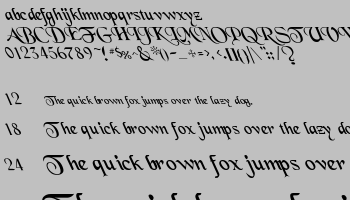 abcdefghijklmnopqrstuvwxyz
ABCDEFGHIJKLMNOPQRSTUVW
0123456789
12 The quick brown fox jumps over the lazy dog.
18 The quick brown fox jumps over the lazy do
24 The quick brown fox jumps over